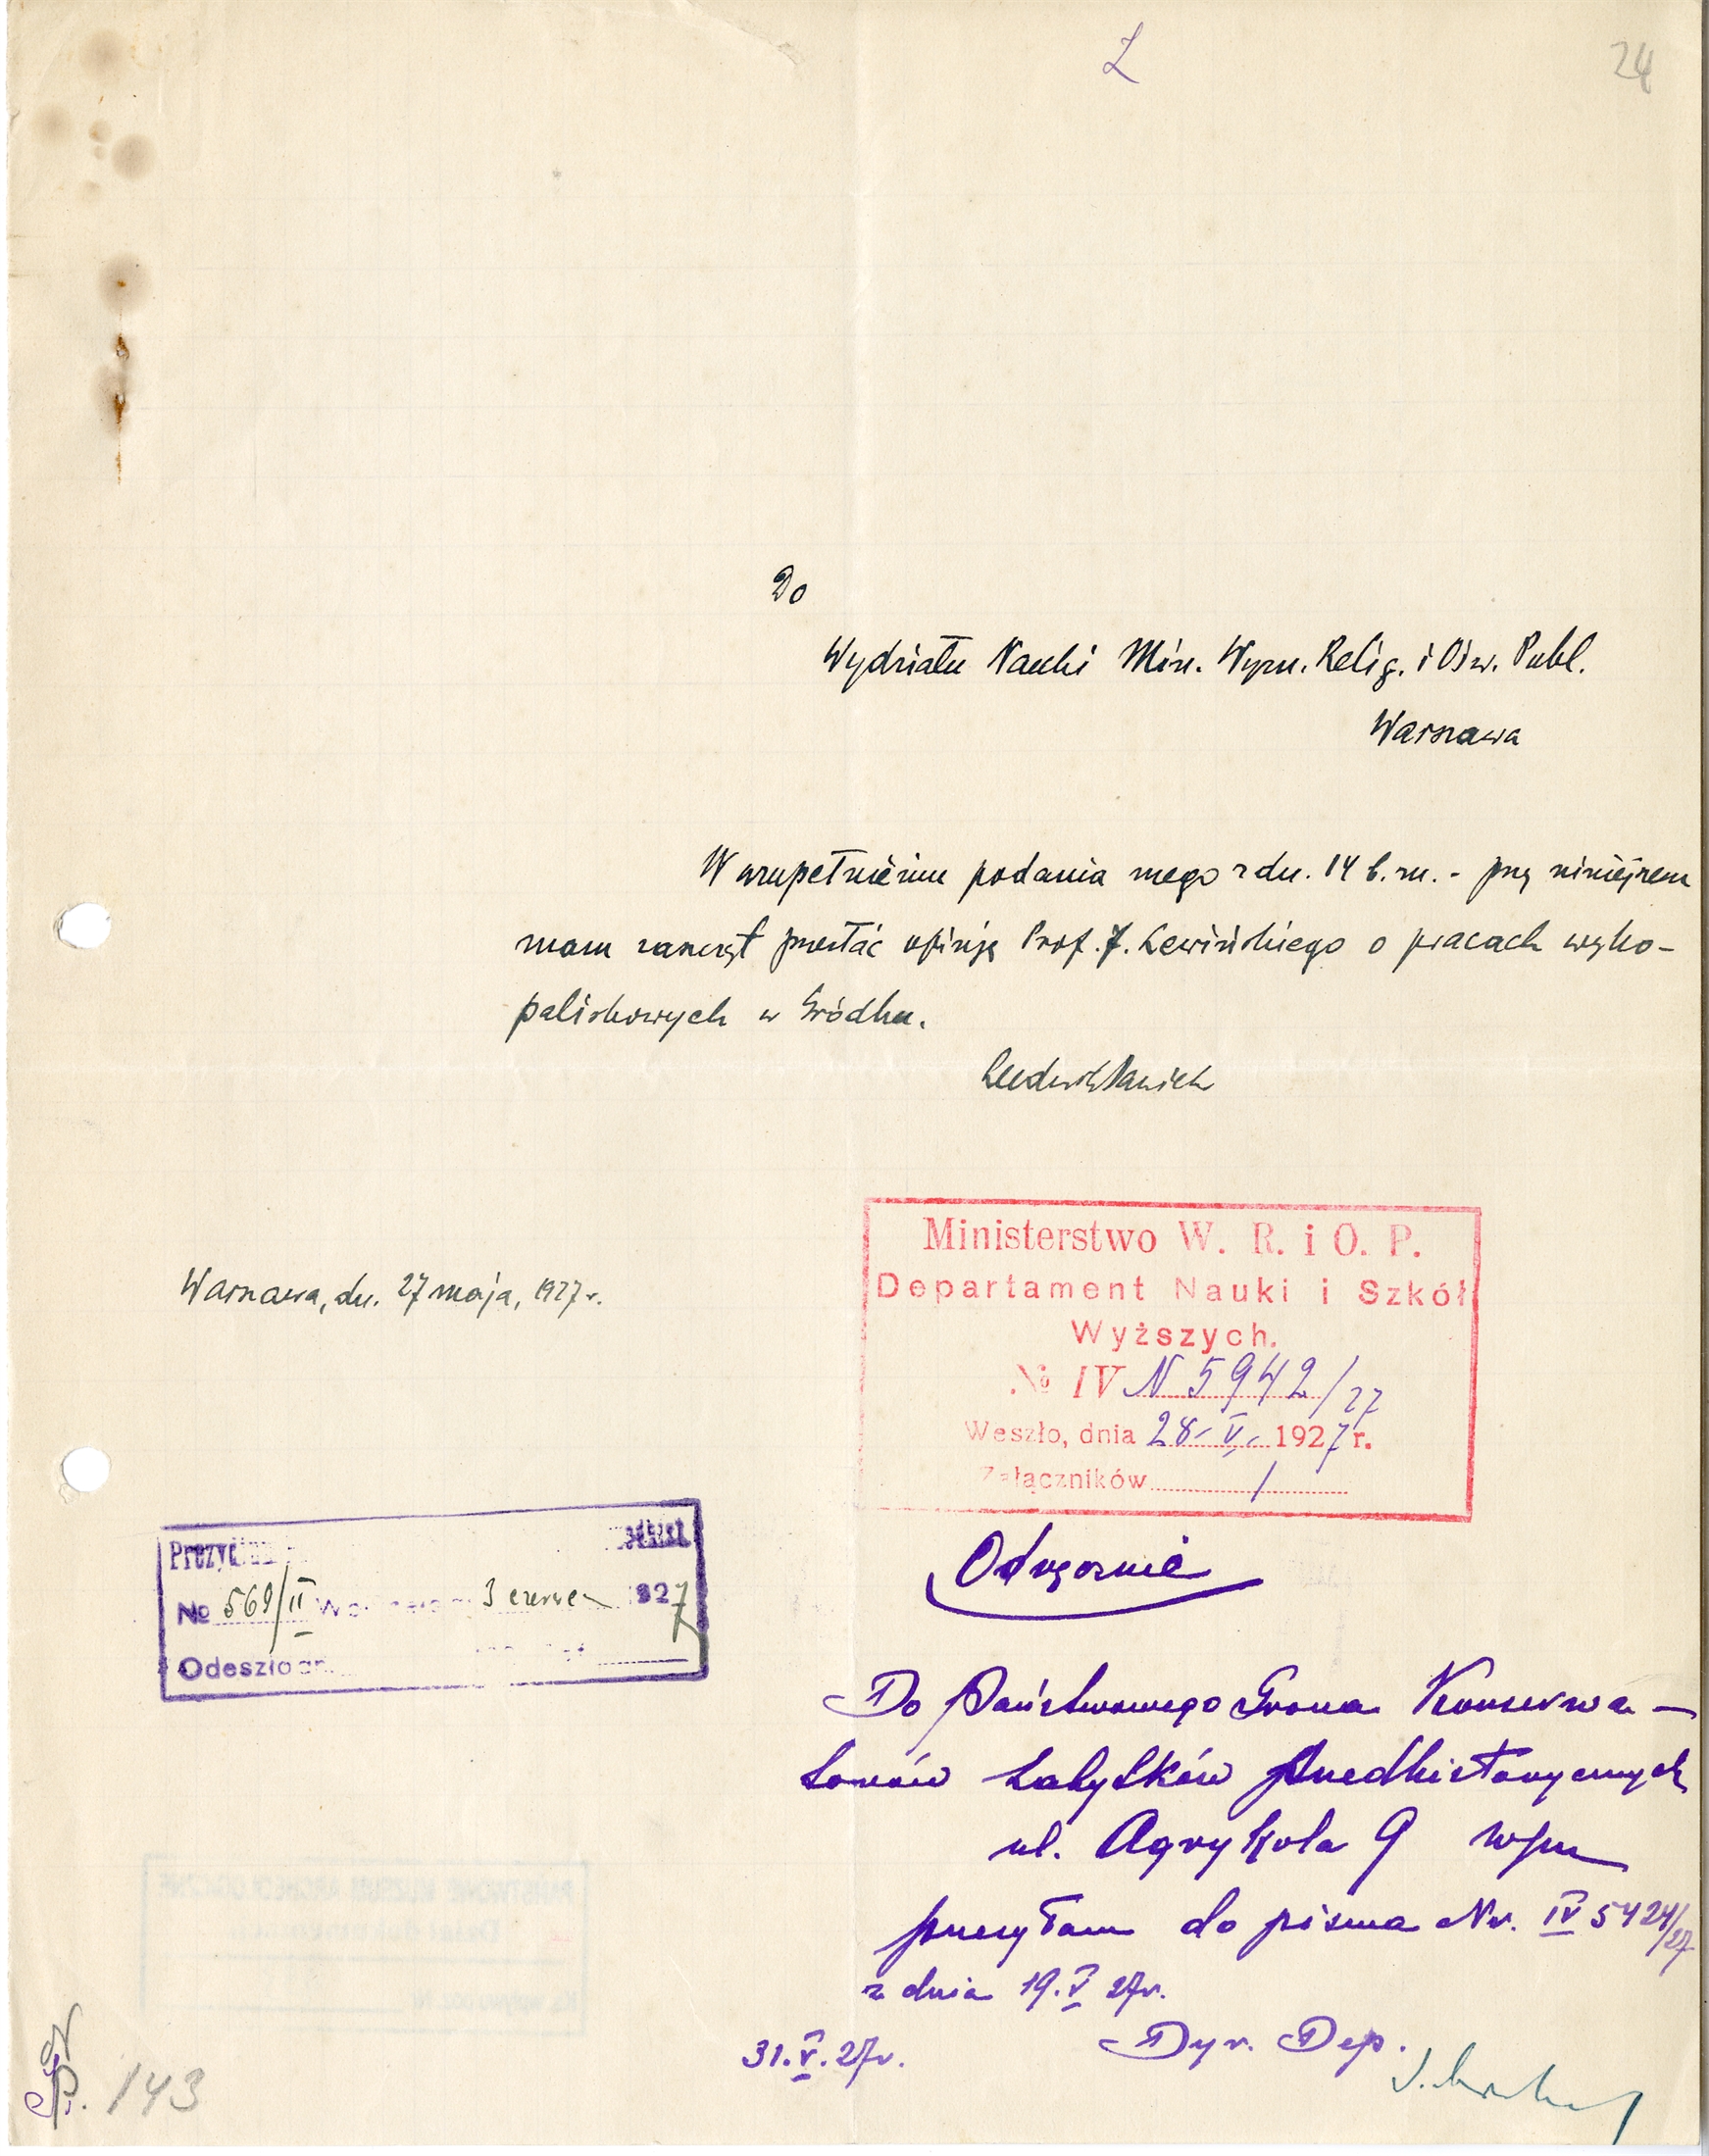 Z
24
Do
Wydziału Nauki Min. Wyzn. Relig. i Ośw. Publ.
Warszawa
W uzupełnieniu podania mego z dn. 14 b.m. - przy niniejszem
mam zaszczyt przesłać opinję Prof. J. Lewińskiego o pracach wyko-
paliskowych w Gródku.
Ludwik Sawicki
Warszawa, dn. 27 maja, 1927 r.
Ministerstwo W. R. i O. P.
Departament Nauki i Szkół
Wyższych.
№ IV N 5942/27
Weszło, dnia 28 V 1927 r.
Załączników 1
Odręcznie
№ 569/II 3 czerwca 1927
Odeszło dn.
Do Państwowego Grona Konserwa-
torów Zabytków Przedhistorycznych
ul. Agrykola 9 w/m
przesyłam do pisma Nr. IV 5424/27
z dnia 19.V 27r.
31.V.27r.
Dyr. Dep.
143